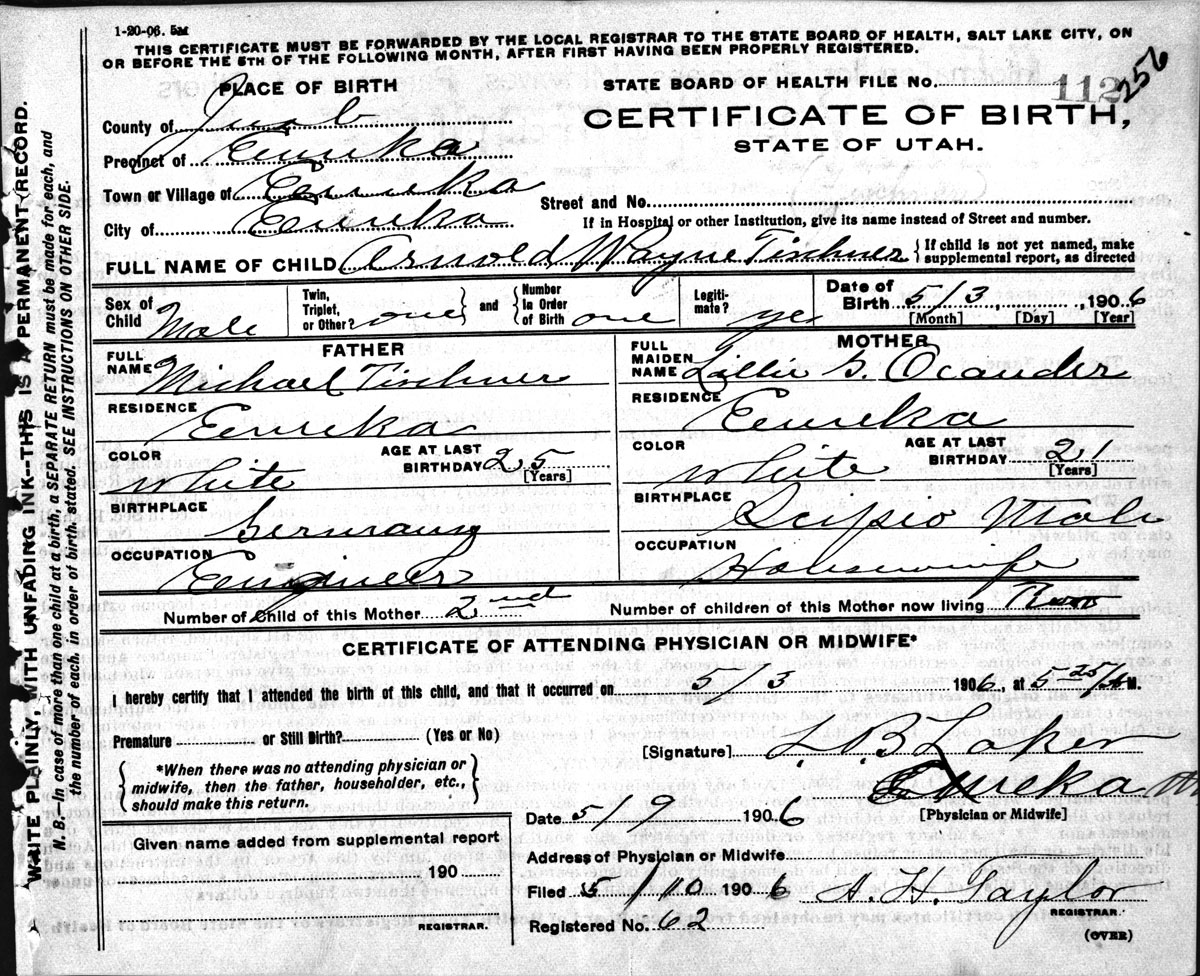 1-20-06. 5M
THIS CERTIFICATE MUST BE FORWARDED BY THE LOCAL REGISTRAR TO THE STATE BOARD OF HEALTH, SALT LAKE CITY, ON
OR BEFORE THE 5TH OF THE FOLLOWING MONTH, AFTER FIRST HAVING BEEN PROPERLY REGISTERED.
WRITE PLAINLY, WITH UNFADING INK--THIS IS A PERMANENT RECORD.
N. B.--In case of more than one child at a birth, a SEPARATE RETURN must be made for each, and
the number of each, in order of birth, stated. SEE INSTRUCTIONS ON OTHER SIDE.
PLACE OF BIRTH
County of Juab
Precinct of Eureka
Town or Village of Eureka
City of Eureka
STATE BOARD OF HEALTH FILE No. 112 256
CERTIFICATE OF BIRTH,
STATE OF UTAH.
Street and No.
If in Hospital or other Institution, give its name instead of Street and number.
FULL NAME OF CHILD Arnold Wayne Tischner { If child is not yet named, make
supplemental report, as directed
Sex of Child Male
Twin, Triplet, or Other? one } and { Number In Order of Birth one
Legitimate? yes
Date of Birth 5/3, 1906
[Month] [Day] [Year]
FATHER
FULL NAME Michael Tischner
RESIDENCE Eureka
COLOR White AGE AT LAST BIRTHDAY 25 [Years]
BIRTHPLACE Germany
OCCUPATION Engineer
MOTHER
FULL MAIDEN NAME Lillie
RESIDENCE Eureka
COLOR White AGE AT LAST BIRTHDAY 21 [Years]
BIRTHPLACE Scipio
OCCUPATION Housewife
Number of Child of this Mother 2nd Number of children of this Mother now living Two
CERTIFICATE OF ATTENDING PHYSICIAN OR MIDWIFE*
I hereby certify that I attended the birth of this child, and that it occurred on 5/3 1906, at 5 M.
Premature or Still Birth? (Yes or No)
{ *When there was no attending physician or
midwife, then the father, householder, etc.,
should make this return. }
[Signature] Laker
Eureka
[Physician or Midwife]
Date 5/9 1906
Address of Physician or Midwife
Given name added from supplemental report
190
REGISTRAR.
Filed 5/10 1906 A. H. Taylor
REGISTRAR.
Registered No. 62
(OVER)